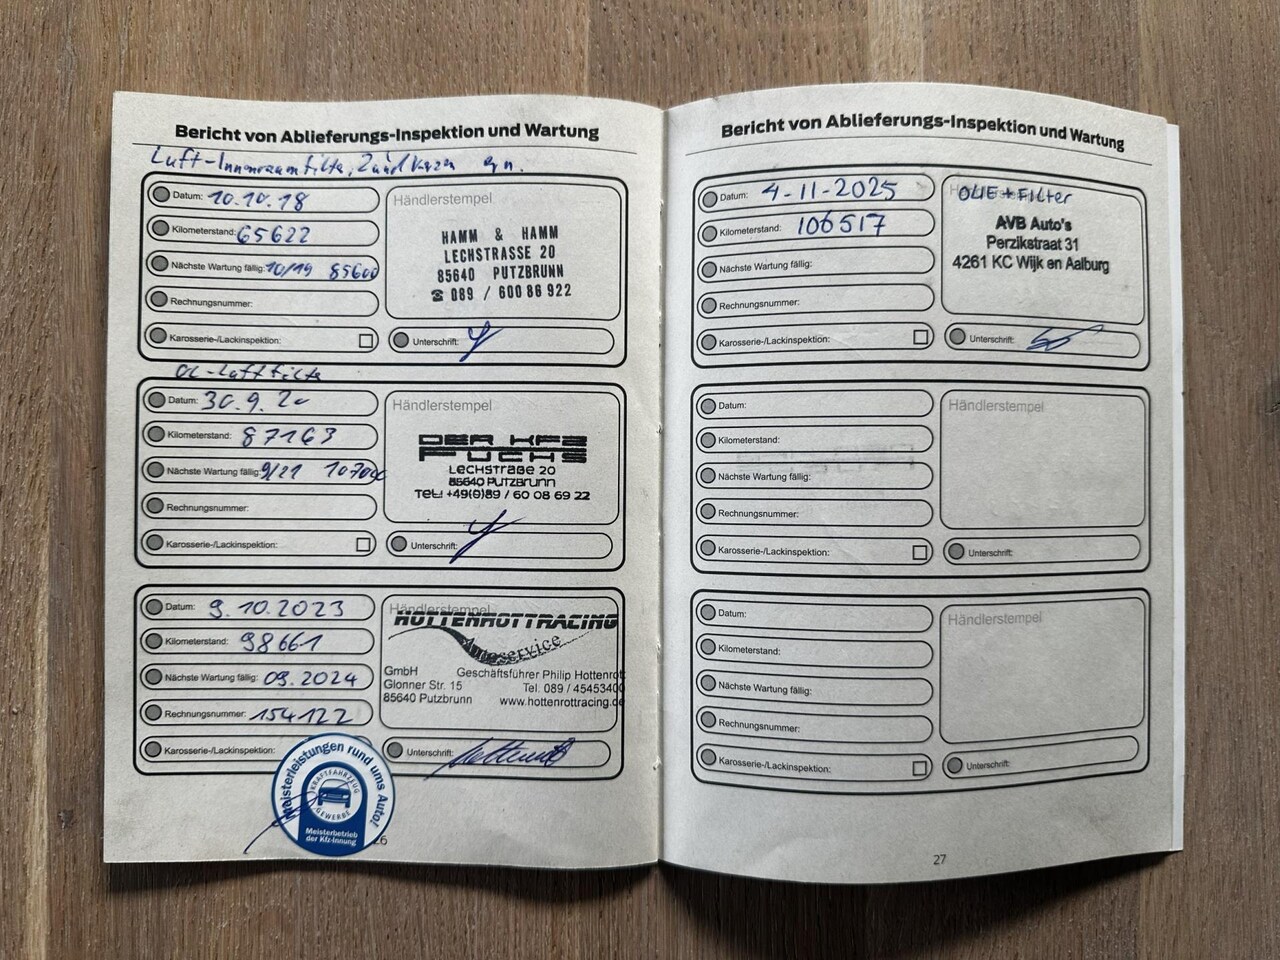 Bericht von Ablieferungs-Inspektion und Wartung
Luft-Innenraumfilter, Zündkerzen
Datum: 10.10.18
Kilometerstand: 65622
Nächste Wartung fällig: 10/19 85600
Rechnungsnummer:
Karosserie-/Lackinspektion:
Händlerstempel
HAMM & HAMM
LECHSTRASSE 20
85640 PUTZBRUNN
☎ 089 / 600 86 922
Unterschrift:
Öl-Luftfilter
Datum: 30.9.20
Kilometerstand: 87163
Nächste Wartung fällig: 9/21 107000
Rechnungsnummer:
Karosserie-/Lackinspektion:
Händlerstempel
DER KFZ
FUCHS
Lechstraße 20
85640 Putzbrunn
Tel: +49(0)89 / 60 08 69 22
Unterschrift:
Datum: 9.10.2023
Kilometerstand: 98661
Nächste Wartung fällig: 09.2024
Rechnungsnummer: 154122
Karosserie-/Lackinspektion:
Händlerstempel
HOTTENROTTRACING
Autoservice
GmbH Geschäftsführer Philip Hottenrott
Glonner Str. 15 Tel. 089 / 45453400
85640 Putzbrunn www.hottenrottracing.de
Unterschrift:
Meisterleistungen rund ums Auto!
KRAFTFAHRZEUG
GEWERBE
Meisterbetrieb
der Kfz-Innung
26
Bericht von Ablieferungs-Inspektion und Wartung
Datum: 4-11-2025
Kilometerstand: 106517
Nächste Wartung fällig:
Rechnungsnummer:
Karosserie-/Lackinspektion:
Händlerstempel
OLIE + FILTER
AVB Auto's
Perzikstraat 31
4261 KC Wijk en Aalburg
Unterschrift:
Datum:
Kilometerstand:
Nächste Wartung fällig:
Rechnungsnummer:
Karosserie-/Lackinspektion:
Händlerstempel
Unterschrift:
Datum:
Kilometerstand:
Nächste Wartung fällig:
Rechnungsnummer:
Karosserie-/Lackinspektion:
Händlerstempel
Unterschrift:
27